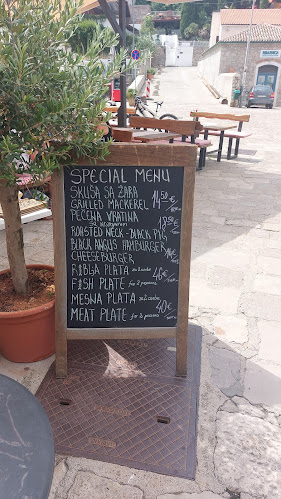 SPECIAL MENU
SKUŠA SA ŽARA
GRILLED MACKEREL 14,50€
PEČENA VRATINA
ROASTED NECK - BLACK PIG
BLACK ANGUS HAMBURGER
CHEESEBURGER
RIBLJA PLATA za 2 osobe
FISH PLATE for 2 persons 46€
MESNA PLATA za 2 osobe
MEAT PLATE for 2 persons 40€